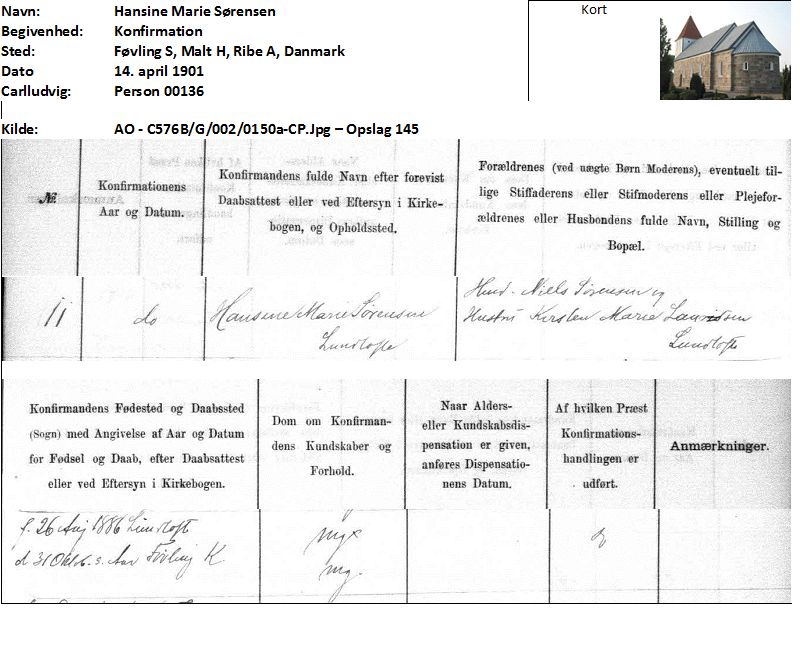 Navn: Hansine Marie Sørensen
Kort
Begivenhed: Konfirmation
Sted: Føvling S, Malt H, Ribe A, Danmark
Dato 14. april 1901
Carlludvig: Person 00136
Kilde: AO - C576B/G/002/0150a-CP.Jpg – Opslag 145
№
Konfirmationens
Aar og Datum.
Konfirmandens fulde Navn efter forevist
Daabsattest eller ved Eftersyn i Kirke-
bogen, og Opholdssted.
Forældrenes (ved uægte Børn Moderens), eventuelt til-
lige Stiffaderens eller Stifmoderens eller Plejefor-
ældrenes eller Husbondens fulde Navn, Stilling og
Bopæl.
11
do
Hansine Marie Sørensen
Lundtofte
Husm. Niels Sørensen og
Hustru Kirsten Marie Lauridsen
Lundtofte
Konfirmandens Fødested og Daabssted
(Sogn) med Angivelse af Aar og Datum
for Fødsel og Daab, efter Daabsattest
eller ved Eftersyn i Kirkebogen.
Dom om Konfirman-
dens Kundskaber og
Forhold.
Naar Alders-
eller Kundskabsdis-
pensation er given,
anføres Dispensatio-
nens Datum.
Af hvilken Præst
Konfirmations-
handlingen er
udført.
Anmærkninger.
f. 26 Aug 1886 Lundtoft
d 31 Okt s. Aar Føvling K
mgx
mg.